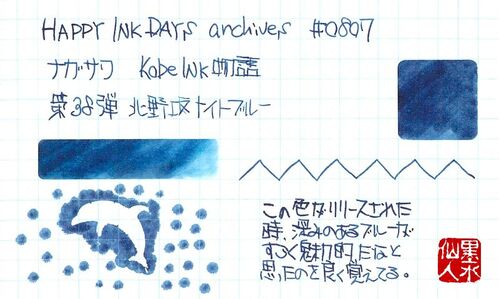 HAPPY INK DAYS archives #0807
ナガサワ Kobe INK物語
第38弾 北野坂ナイトブルー
この色がリリースされた
時、深みのあるブルーが
すごく魅力的だなと
思ったのを良く覚えてる。
墨水
仙人